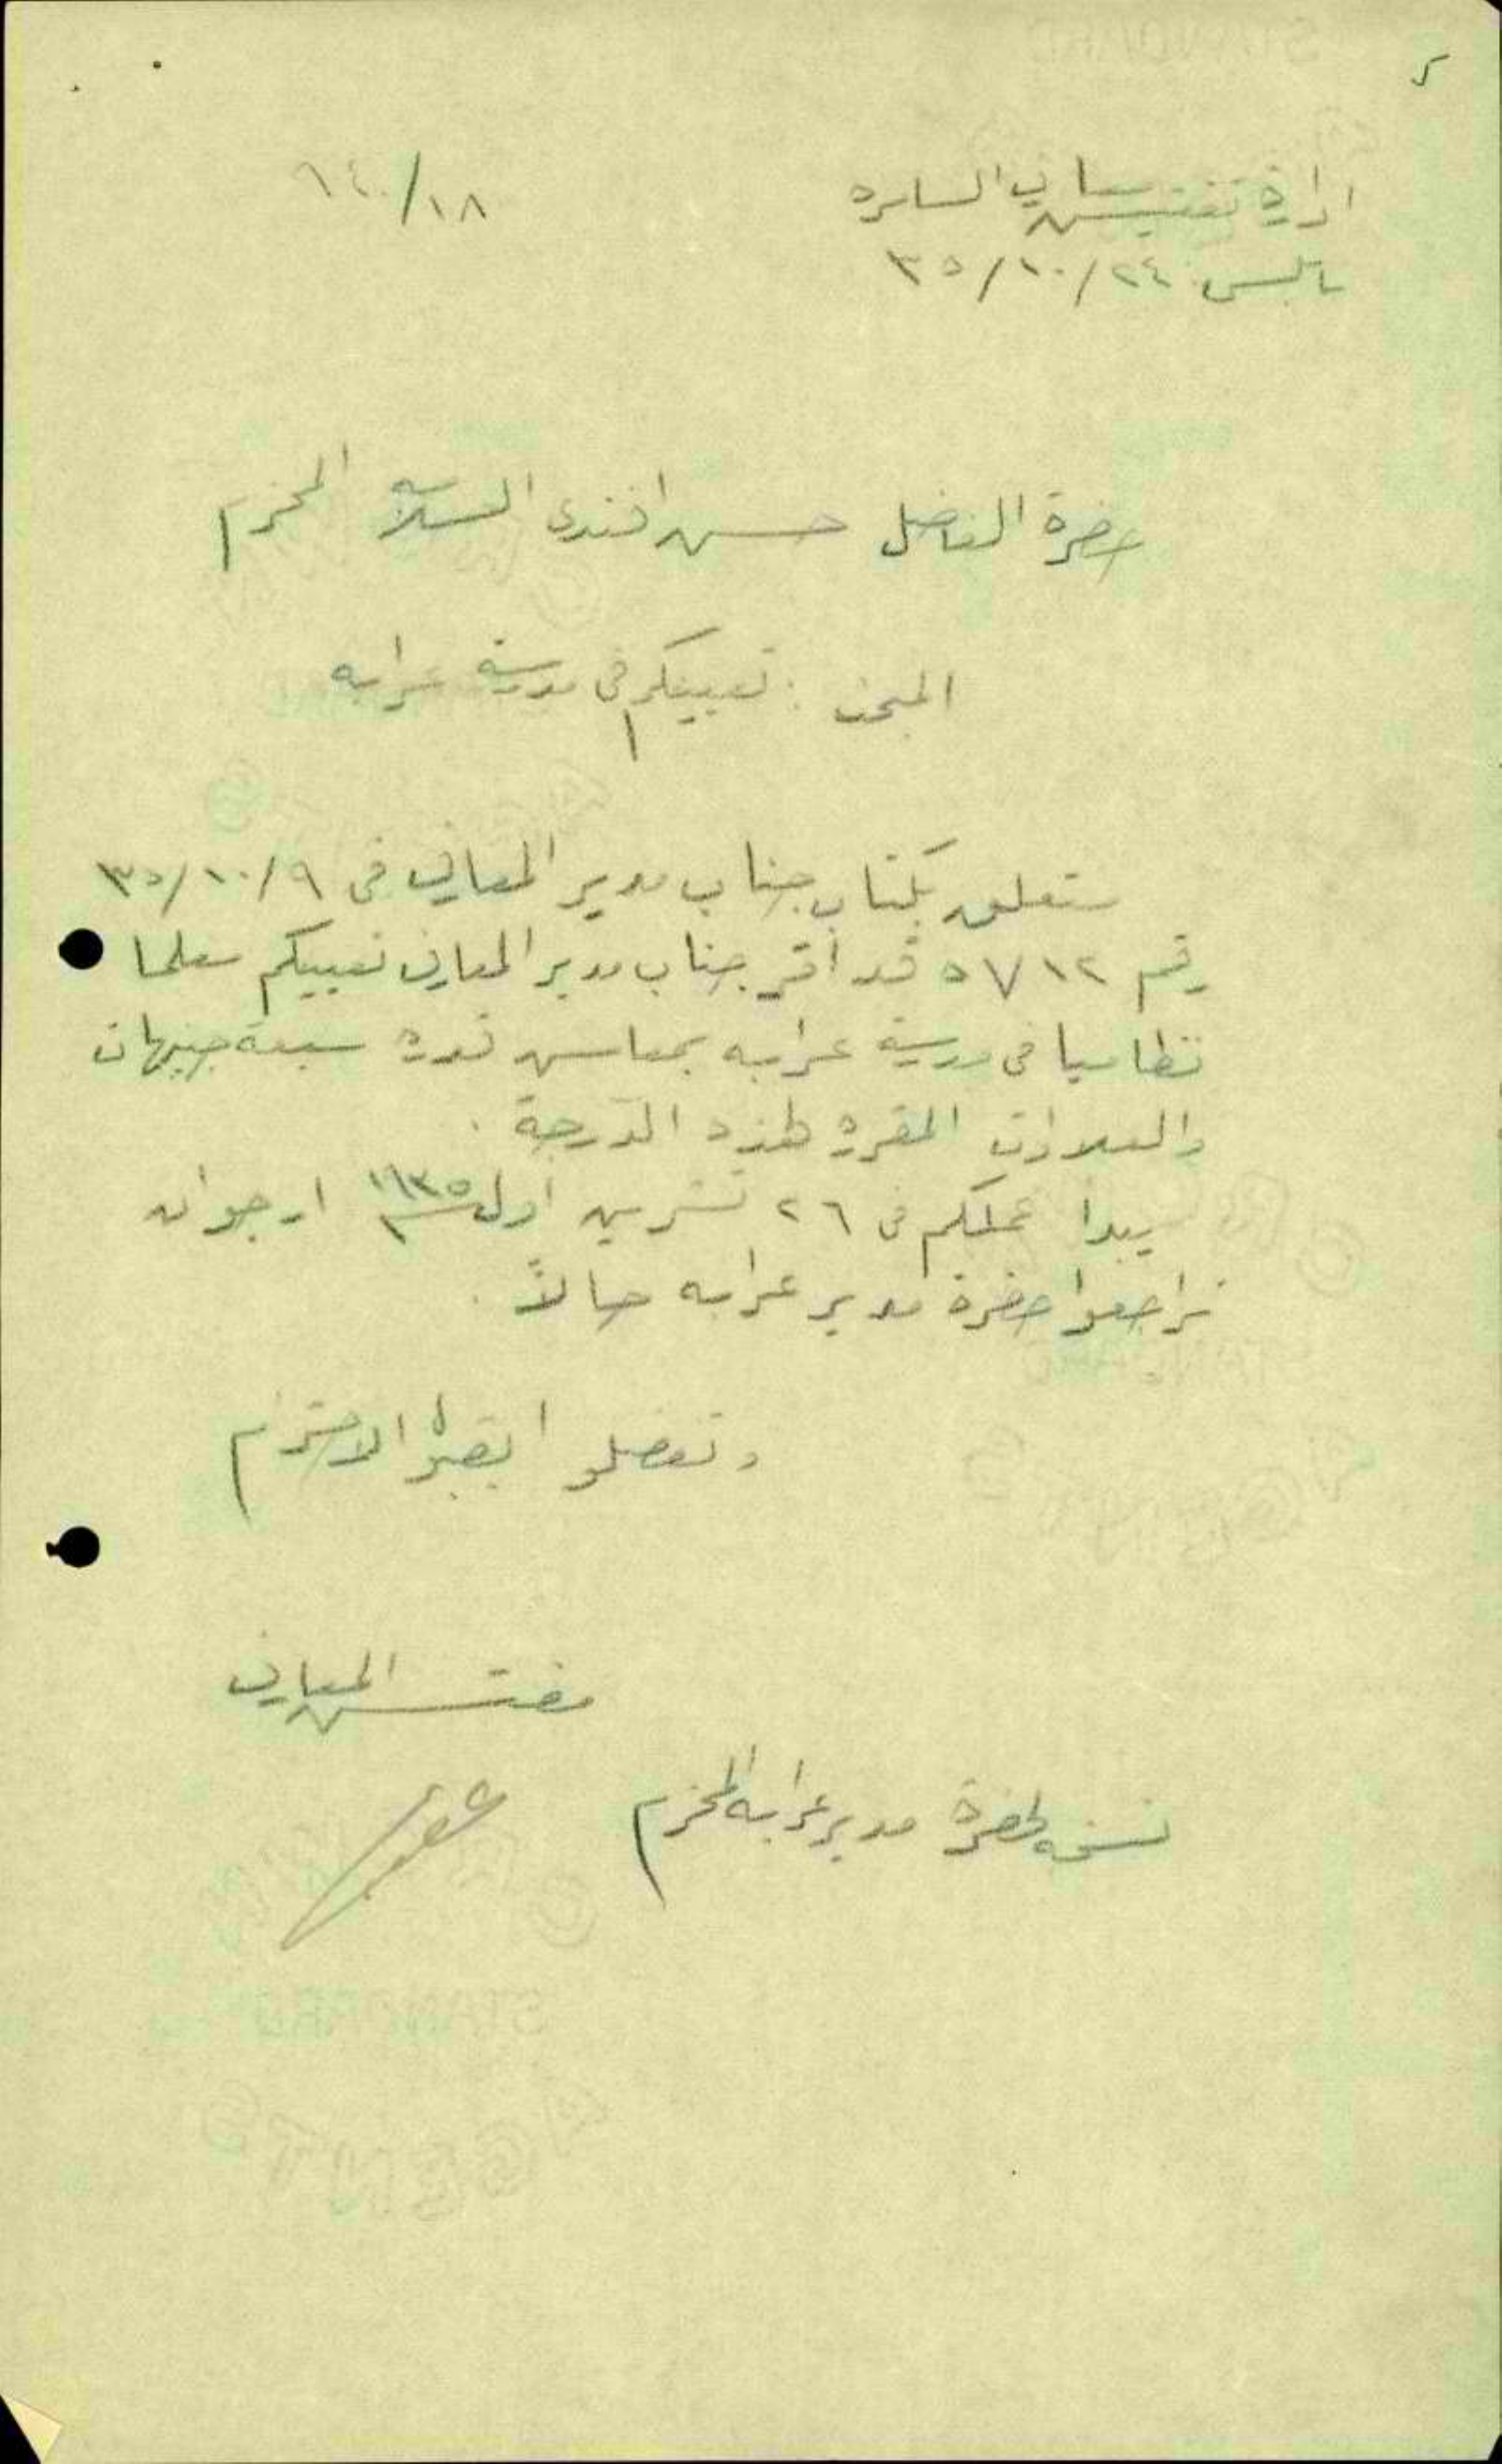 ٢
ادارة تفتيش معارف السامره
١٤٠/١٨
نابلس ٢٤/١٠/٣٥
حضرة الفاضل حسن افندى المحترم
المبحث : تعيينكم في مدرسة عرابه
يتعلق بكتاب جناب مدير المعارف في ٩/١٠/٣٥
رقم ٥٧١٢ قد اقر جناب مدير المعارف تعيينكم معلما
نظاميا في مدرسة عرابه بمعاش قدره سبعة جنيهات
والعلاوات المقرره لهذه الدرجة .
يبدا عملكم في ٢٦ تشرين اول ١٩٣٥ ارجو ان
تراجعوا حضرة مدير عرابه حالاً .
وتفضلوا بقبول الاحترام
مفتش المعارف
نسخه لحضرة مدير عرابه المحترم